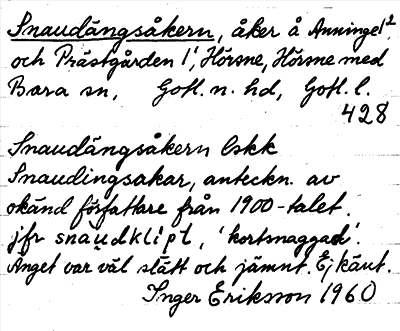 Snaudängsåkern, åker å Anninge 1²,
och Prästgården 1¹, Hörsne, Hörsne med
Bara sn, Gotl. n. hd, Gotl. l.
428
Snaudängsåkern lskk
Snaudingsakar, anteckn. av
okänd författare från 1900-talet.
jfr snau̯dklipt, 'kortsnaggad'.
Änget var väl slätt och jämnt. Ej känt.
Inger Eriksson 1960